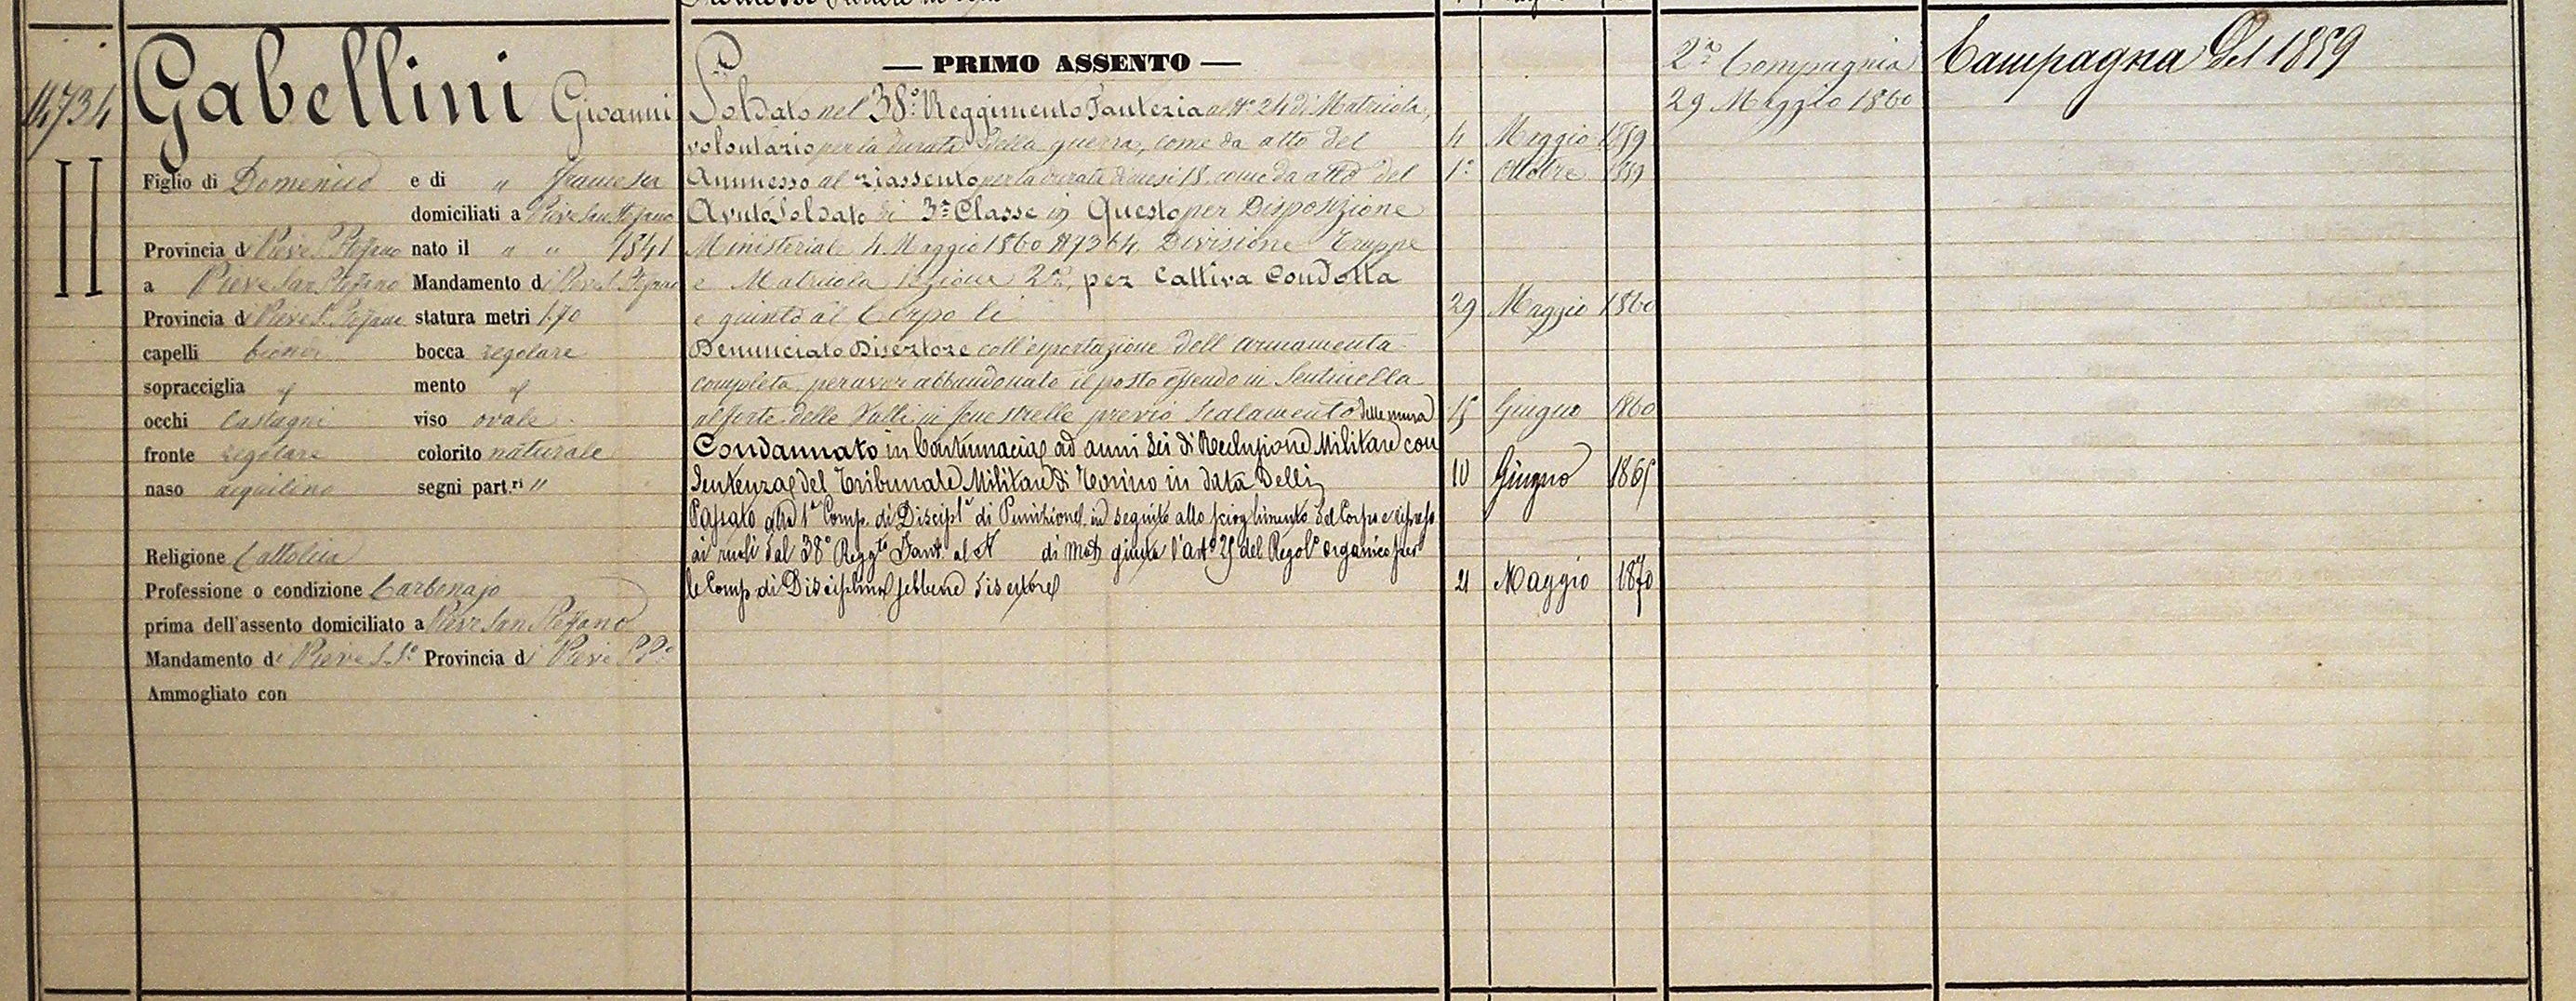 14734
II
Gabellini Giovanni
Figlio di Domenico e di " Francesca
domiciliati a Pieve San Stefano
Provincia di Pieve S. Steffano nato il " " 1841
a Pieve San Steffano Mandamento di Pieve S. Stefano
Provincia di Pieve S. Stefano statura metri 1.70
capelli biondi bocca regolare
sopracciglia id mento id
occhi castagni viso ovale
fronte regolare colorito naturale
naso acquilino segni part.ri "
Religione Cattolica
Professione o condizione Carbonajo
prima dell'assento domiciliato a Pieve San Steffano
Mandamento di Pieve S. S.o Provincia di Pieve S. S.o
Ammogliato con
— PRIMO ASSENTO —
Soldato nel 38.o Reggimento Fanteria al N.o 24 di Matricola,
volontario per la durata della guerra, come da atto del 4 Maggio 1859
Ammesso al riassento per la durata di mesi 18, come da atto del 1.o Ottobre 1859
Avuto Soldato di 3.a Classe in Questo per Disposizione
Ministeriale 4 Maggio 1860 N 7364 Divisione Truppe
e Matricola Sezione 2.a, per Cattiva Condotta
e giunto al Corpo li 29 Maggio 1860
Denunciato Disertore coll'esportazione dell'armamento
completo per aver abbandonato il posto essendo in Sentinella
al forte delle Valli in Fenestrelle previo Scalamento delle mura 15 Giugno 1860
Condannato in Contumacia ad anni Sei di Reclusione Militare con
Sentenza del Tribunale Militare di Torino in data Delli 10 Giugno 1865
Passato alla 1.a Comp. di Discipl.a di Punizione in seguito allo scioglimento del Corpo e ripreso
ai ruoli dal 38.o Regg.to Fant. al N di Mat. giusta l'art.o 25 del Regol.o organico per
le Comp. di Disciplina sebbene disertore 21 Maggio 1870
2.a Compagnia
29 Maggio 1860
Campagna Del 1859